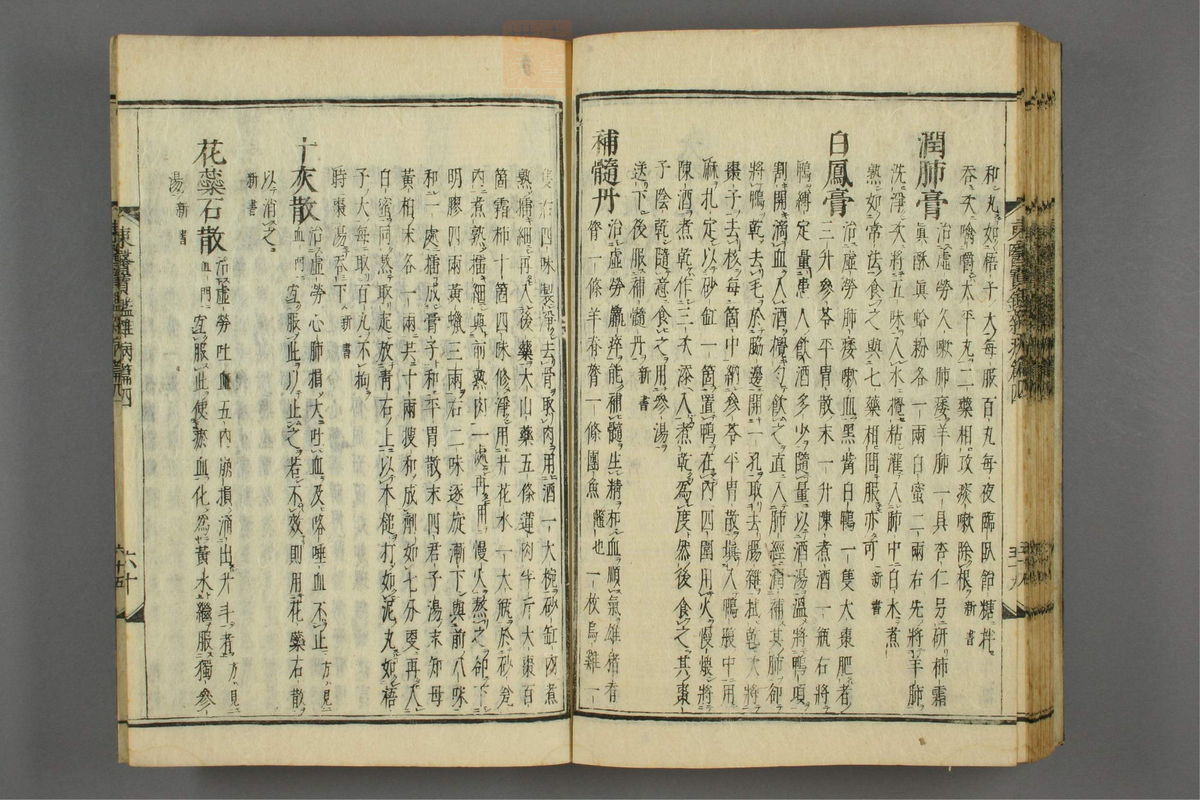 和丸如梧子大每服百丸每夜臨臥飴糖拌
吞次噙嚼太平丸二藥相攻痰嗽除根新書
潤肺膏 治虛勞久嗽肺痿羊肺一具杏仁另研柿霜
眞酥眞蛤粉各一兩白蜜二兩右先將羊肺
洗淨次將五味入水攪粘灌入肺中白水煮
熟如常法食之與七藥相間服亦可新書
白鳳膏 治虛勞肺痿嗽血黑嘴白鴨一隻大棗肥者
三升參苓平胃散末一升陳煮酒一瓶右將
鴨縛定量患人飮酒多少隨量以酒湯溫將鴨項
割開滴血入酒攪勻飮之直入肺經潤補其肺却
將鴨乾去毛於脇邊開一孔取去腸雜拭乾次將
棗子去核每箇中納參苓平胃散塡入鴨腹中用
麻扎定以砂缸一箇置鴨在內四圍用火慢煨將
陳酒煮乾作三次添入煮乾爲度然後食之其棗
子陰乾隨意食之用參湯
送下後服補髓丹新書
補髓丹 治虛勞羸瘁能補髓生精和血順氣雄猪脊
膂一條羊脊膂一條團魚鼈也一枚烏雞一
隻右四味製淨去骨取肉用酒一大椀砂缸內煮
熟擂細再入後藥大山藥五條蓮肉半斤大棗百
箇霜柿十箇四味修淨用井花水一大瓶於砂瓮
內煮熟擂細與前熟肉一處再用慢火熬之却下
明膠四兩黃蠟三兩右二味逐旋漸下與前八味
和一處擂成膏子和平胃散末四君子湯末知母
黃栢末各一兩共十兩搜和成劑如七分硬再入
白蜜同熬取起放靑石上以木槌打如泥丸如梧
子大每取百丸不拘
時棗湯吞下新書
十灰散 治虛勞心肺損大吐血及咯唾血不止方見
血門宜服此以止之若不效則用花藥石散
以消之
新書
花蘂石散 治虛勞吐血五內崩損涌出升斗者方見
血門宜服此使瘀血化爲黃水繼服獨參
湯新書
東醫寶鑑雜病篇四
六十五
六十